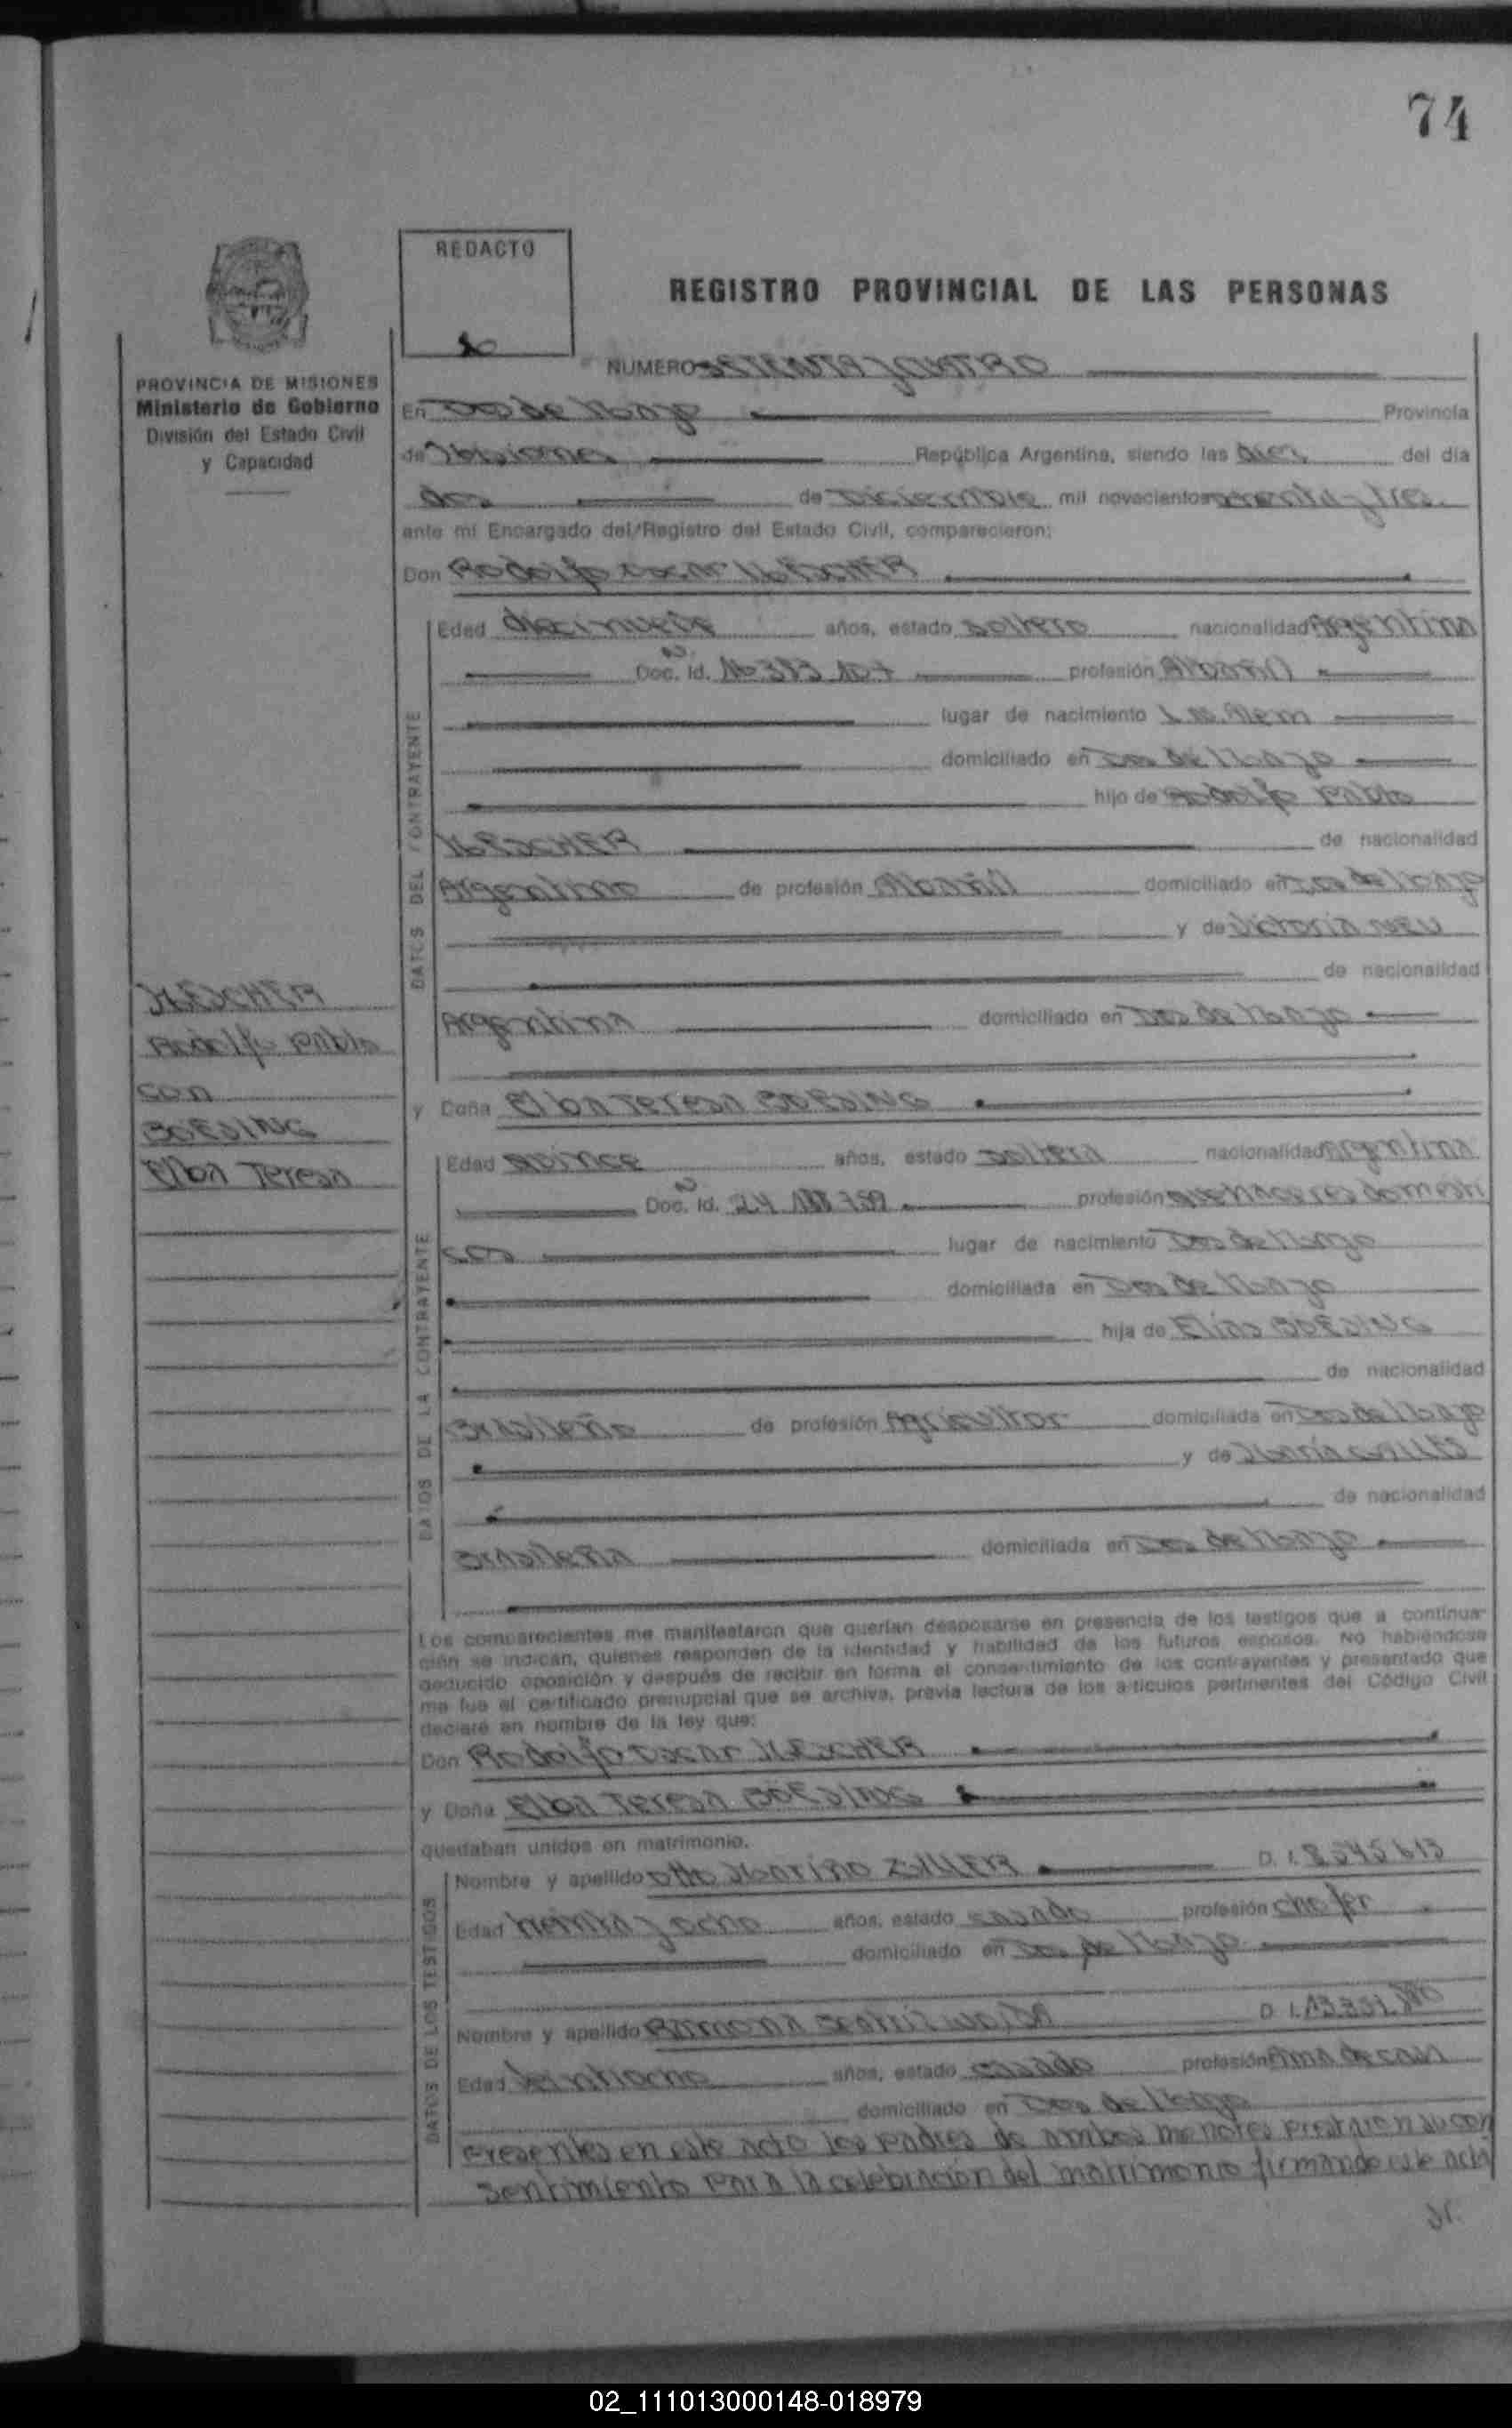 74
REDACTO
REGISTRO PROVINCIAL DE LAS PERSONAS
PROVINCIA DE MISIONES
Ministerio de Gobierno
División del Estado Civil
y Capacidad
NUMERO SETENTA y CUATRO
En Dos de Mayo Provincia
de Misiones República Argentina, siendo las diez del día
dos de Diciembre mil novecientos
ante mí Encargado del Registro del Estado Civil, comparecieron:
Don Rodolfo Oscar
Edad diecinueve años, estado soltero nacionalidad Argentina
Doc. Id. profesión Albañil
lugar de nacimiento L. N. Alem
domiciliado en Dos de Mayo
hijo de Rodolfo Pablo
de nacionalidad
Argentino de profesión Albañil domiciliado en Dos de Mayo
y de Victoria NEU
de nacionalidad
Argentina domiciliado en Dos de Mayo
Rodolfo Pablo
con
BOESING
Elba Teresa
y Doña Elba Teresa BOESING
Edad quince años, estado soltera nacionalidad Argentina
Doc. Id. profesión quehaceres domésti
cos lugar de nacimiento Dos de Mayo
domiciliada en Dos de Mayo
hija de Elias BOESING
de nacionalidad
Brasileño de profesión Agricultor domiciliada en Dos de Mayo
y de María
de nacionalidad
Brasileña domiciliada en Dos de Mayo
DATOS DEL CONTRAYENTE
DATOS DE LA CONTRAYENTE
Los comparecientes me manifestaron que querían desposarse en presencia de los testigos que a continua-
ción se indican, quienes responden de la identidad y habilidad de los futuros esposos. No habiéndose
deducido oposición y después de recibir en forma el consentimiento de los contrayentes y presentado que
me fue el certificado prenupcial que se archiva, previa lectura de los artículos pertinentes del Código Civil
declaré en nombre de la ley que:
Don Rodolfo Oscar
y Doña Elba Teresa BOESING
quedaban unidos en matrimonio.
Nombre y apellido Otto Mariño D. I. 8.545.613
Edad treinta y ocho años, estado casado profesión chofer
domiciliado en Dos de Mayo
Nombre y apellido Ramona Beatriz D. I.
Edad veintiocho años, estado casado profesión Ama de casa
domiciliado en Dos de Mayo
DATOS DE LOS TESTIGOS
Presentes en este acto los padres de ambos menores prestaron su con
sentimiento para la celebración del matrimonio firmando este acta
02_111013000148-018979